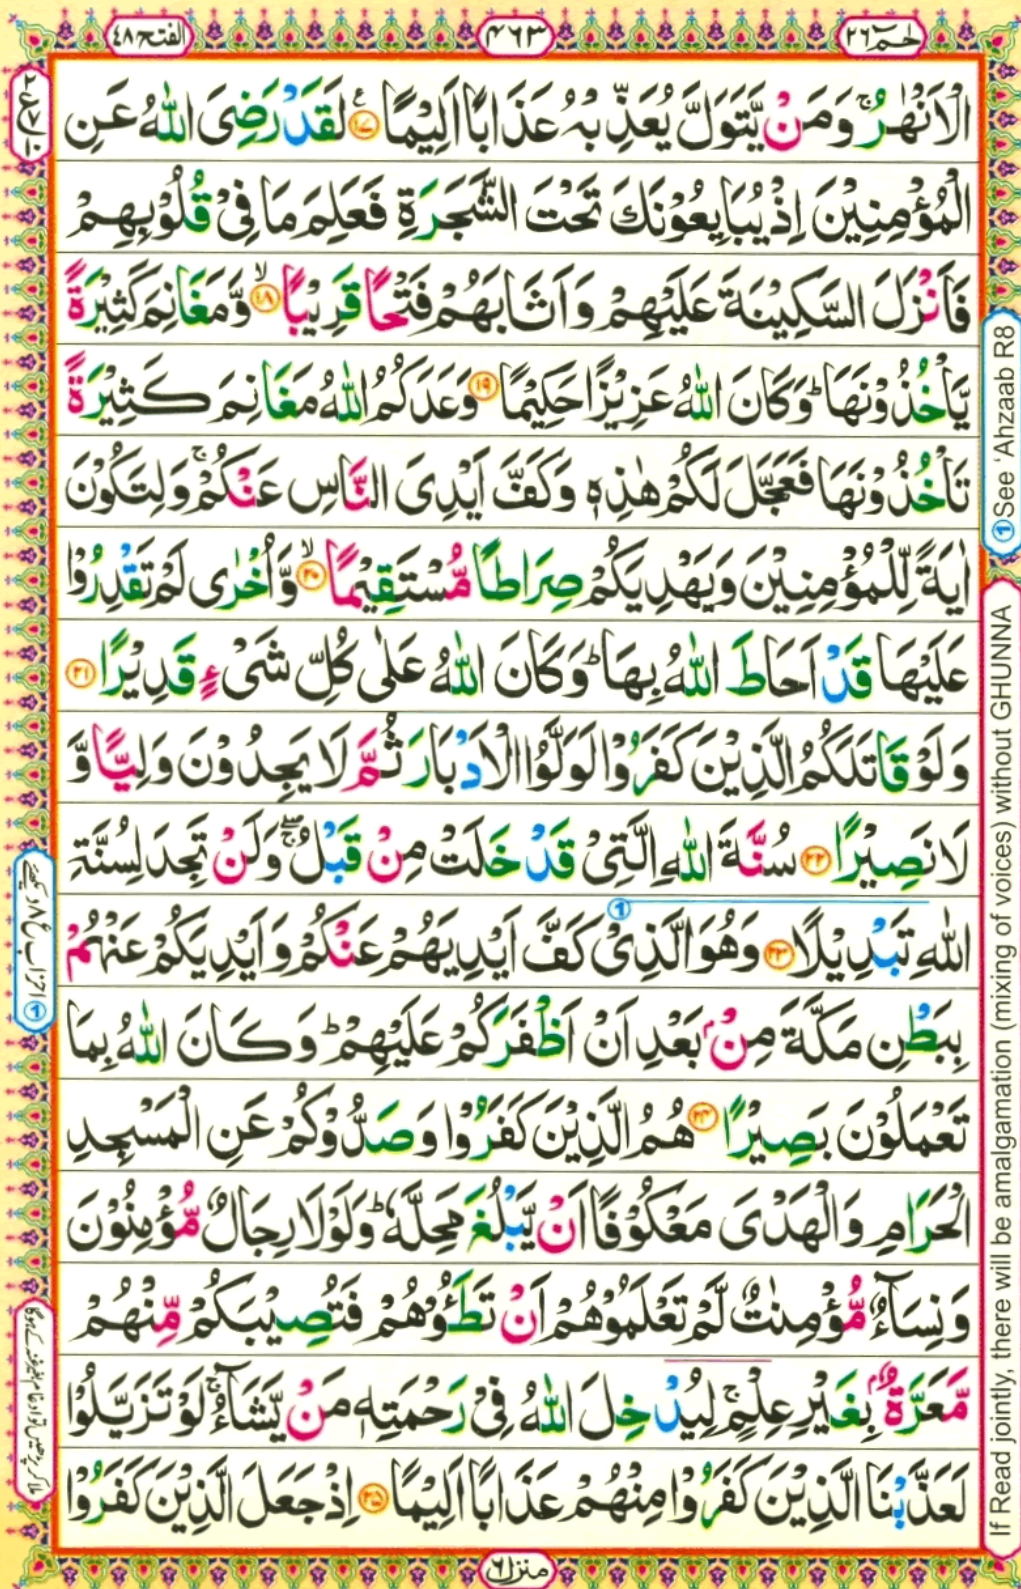 الفتح ٤٨
٤٦٣
حٰمٓ ٢٦
الْاَنْهٰرُ ۚ وَمَنْ يَّتَوَلَّ يُعَذِّبْهُ عَذَابًا اَلِيْمًا ﴿١٧﴾ لَقَدْ رَضِىَ اللّٰهُ عَنِ
الْمُؤْمِنِيْنَ اِذْ يُبَايِعُوْنَكَ تَحْتَ الشَّجَرَةِ فَعَلِمَ مَا فِىْ قُلُوْبِهِمْ
فَاَنْزَلَ السَّكِيْنَةَ عَلَيْهِمْ وَاَثَابَهُمْ فَتْحًا قَرِيْبًا ۙ﴿١٨﴾ وَّمَغَانِمَ كَثِيْرَةً
يَّاْخُذُوْنَهَا ؕ وَكَانَ اللّٰهُ عَزِيْزًا حَكِيْمًا ﴿١٩﴾ وَعَدَكُمُ اللّٰهُ مَغَانِمَ كَثِيْرَةً
تَاْخُذُوْنَهَا فَعَجَّلَ لَكُمْ هٰذِهٖ وَكَفَّ اَيْدِىَ النَّاسِ عَنْكُمْ ۚ وَلِتَكُوْنَ
اٰيَةً لِّلْمُؤْمِنِيْنَ وَيَهْدِيَكُمْ صِرَاطًا مُّسْتَقِيْمًا ۙ﴿٢٠﴾ وَّاُخْرٰى لَمْ تَقْدِرُوْا
عَلَيْهَا قَدْ اَحَاطَ اللّٰهُ بِهَا ؕ وَكَانَ اللّٰهُ عَلٰى كُلِّ شَىْءٍ قَدِيْرًا ﴿٢١﴾
وَلَوْ قَاتَلَكُمُ الَّذِيْنَ كَفَرُوْا لَوَلَّوُا الْاَدْبَارَ ثُمَّ لَا يَجِدُوْنَ وَلِيًّا وَّ
لَا نَصِيْرًا ﴿٢٢﴾ سُنَّةَ اللّٰهِ الَّتِىْ قَدْ خَلَتْ مِنْ قَبْلُ ۖۚ وَلَنْ تَجِدَ لِسُنَّةِ
اللّٰهِ تَبْدِيْلًا ﴿٢٣﴾ وَهُوَ الَّذِىْ كَفَّ اَيْدِيَهُمْ عَنْكُمْ وَاَيْدِيَكُمْ عَنْهُمْ
بِبَطْنِ مَكَّةَ مِنْۢ بَعْدِ اَنْ اَظْفَرَكُمْ عَلَيْهِمْ ؕ وَكَانَ اللّٰهُ بِمَا
تَعْمَلُوْنَ بَصِيْرًا ﴿٢٤﴾ هُمُ الَّذِيْنَ كَفَرُوْا وَصَدُّوْكُمْ عَنِ الْمَسْجِدِ
الْحَرَامِ وَالْهَدْىَ مَعْكُوْفًا اَنْ يَّبْلُغَ مَحِلَّهٗ ؕ وَلَوْلَا رِجَالٌ مُّؤْمِنُوْنَ
وَنِسَآءٌ مُّؤْمِنٰتٌ لَّمْ تَعْلَمُوْهُمْ اَنْ تَطَئُوْهُمْ فَتُصِيْبَكُمْ مِّنْهُمْ
مَّعَرَّةٌۢ بِغَيْرِ عِلْمٍ ۚ لِيُدْخِلَ اللّٰهُ فِىْ رَحْمَتِهٖ مَنْ يَّشَآءُ ۚ لَوْ تَزَيَّلُوْا
لَعَذَّبْنَا الَّذِيْنَ كَفَرُوْا مِنْهُمْ عَذَابًا اَلِيْمًا ﴿٢٥﴾ اِذْ جَعَلَ الَّذِيْنَ كَفَرُوْا
منزل ٦
① See 'Ahzaab R8
If Read jointly, there will be amalgamation (mixing of voices) without GHUNNA
① احزاب ع ٨ دیکھئے
ملا کر پڑھیں تو ادغام بغیر غنہ کے ہوگا